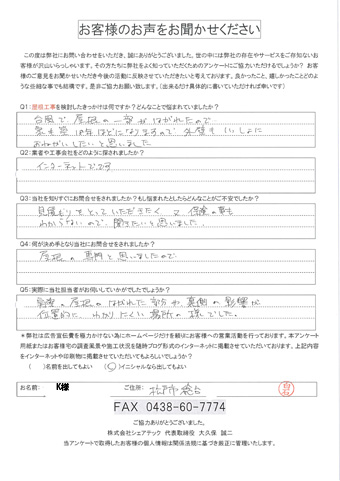 お客様のお声をお聞かせください
この度は弊社にお問い合わせをいただき、誠にありがとうございました。世の中には弊社の存在やサービスをご存知ないお
客様が沢山いらっしゃいます。その方たちに弊社をよく知っていただくためのアンケートにご協力いただけるでしょうか? お客
様のご意見をお聞かせいただき今後の活動に反映させていただきたいと考えております。良かったこと、嬉しかったことどのよ
うな些細な事でも結構です。是非ご協力お願い致します。(出来るだけ具体的に書いていただければ幸いです)
Q1:屋根工事を検討したきっかけは何ですか?どんなことで悩まれていましたか?
台風で屋根の一部がはがれたので
家も築18年ほどになりますので、外壁もいっしょに
おねがいしたいと思いました
Q2:業者や工事会社をどのように探されましたか?
インターネットです
Q3:当社を知りすぐにお問合せをされましたか?もし悩まれたとしたらどんなことがご不安でしたか?
見積もりをとっていただきたく 又 保険の事も
わからないので、聞きたいと思いました。
Q4:何が決め手となり当社にお問合せをされましたか?
屋根の専門と思いましたので
Q5:実際に当社担当者がお伺いしていかがでしたでしょうか?
の屋根のはがれた部分や、裏側の影響が
位置的に、わかりにくい場所の様でした。
*弊社は広告宣伝費を極力かけない為にホームページだけを頼りにお客様への営業活動を行っております。本アンケート
用紙またはお客様宅の調査風景や施工状況を随時ブログ形式のインターネットに掲載させていただいております。上記内容
をインターネットや印刷物に掲載させていただいてもよろしいでしょうか?
( )名前を出してもよい (○)イニシャルなら出してもよい
お名前: K様 ご住所:
FAX 0438-60-7774
ご協力ありがとうございました。
株式会社シェアテック 代表取締役 大久保 誠二
当アンケートで取得したお客様の個人情報は関係法規に基づき厳正に管理いたします。